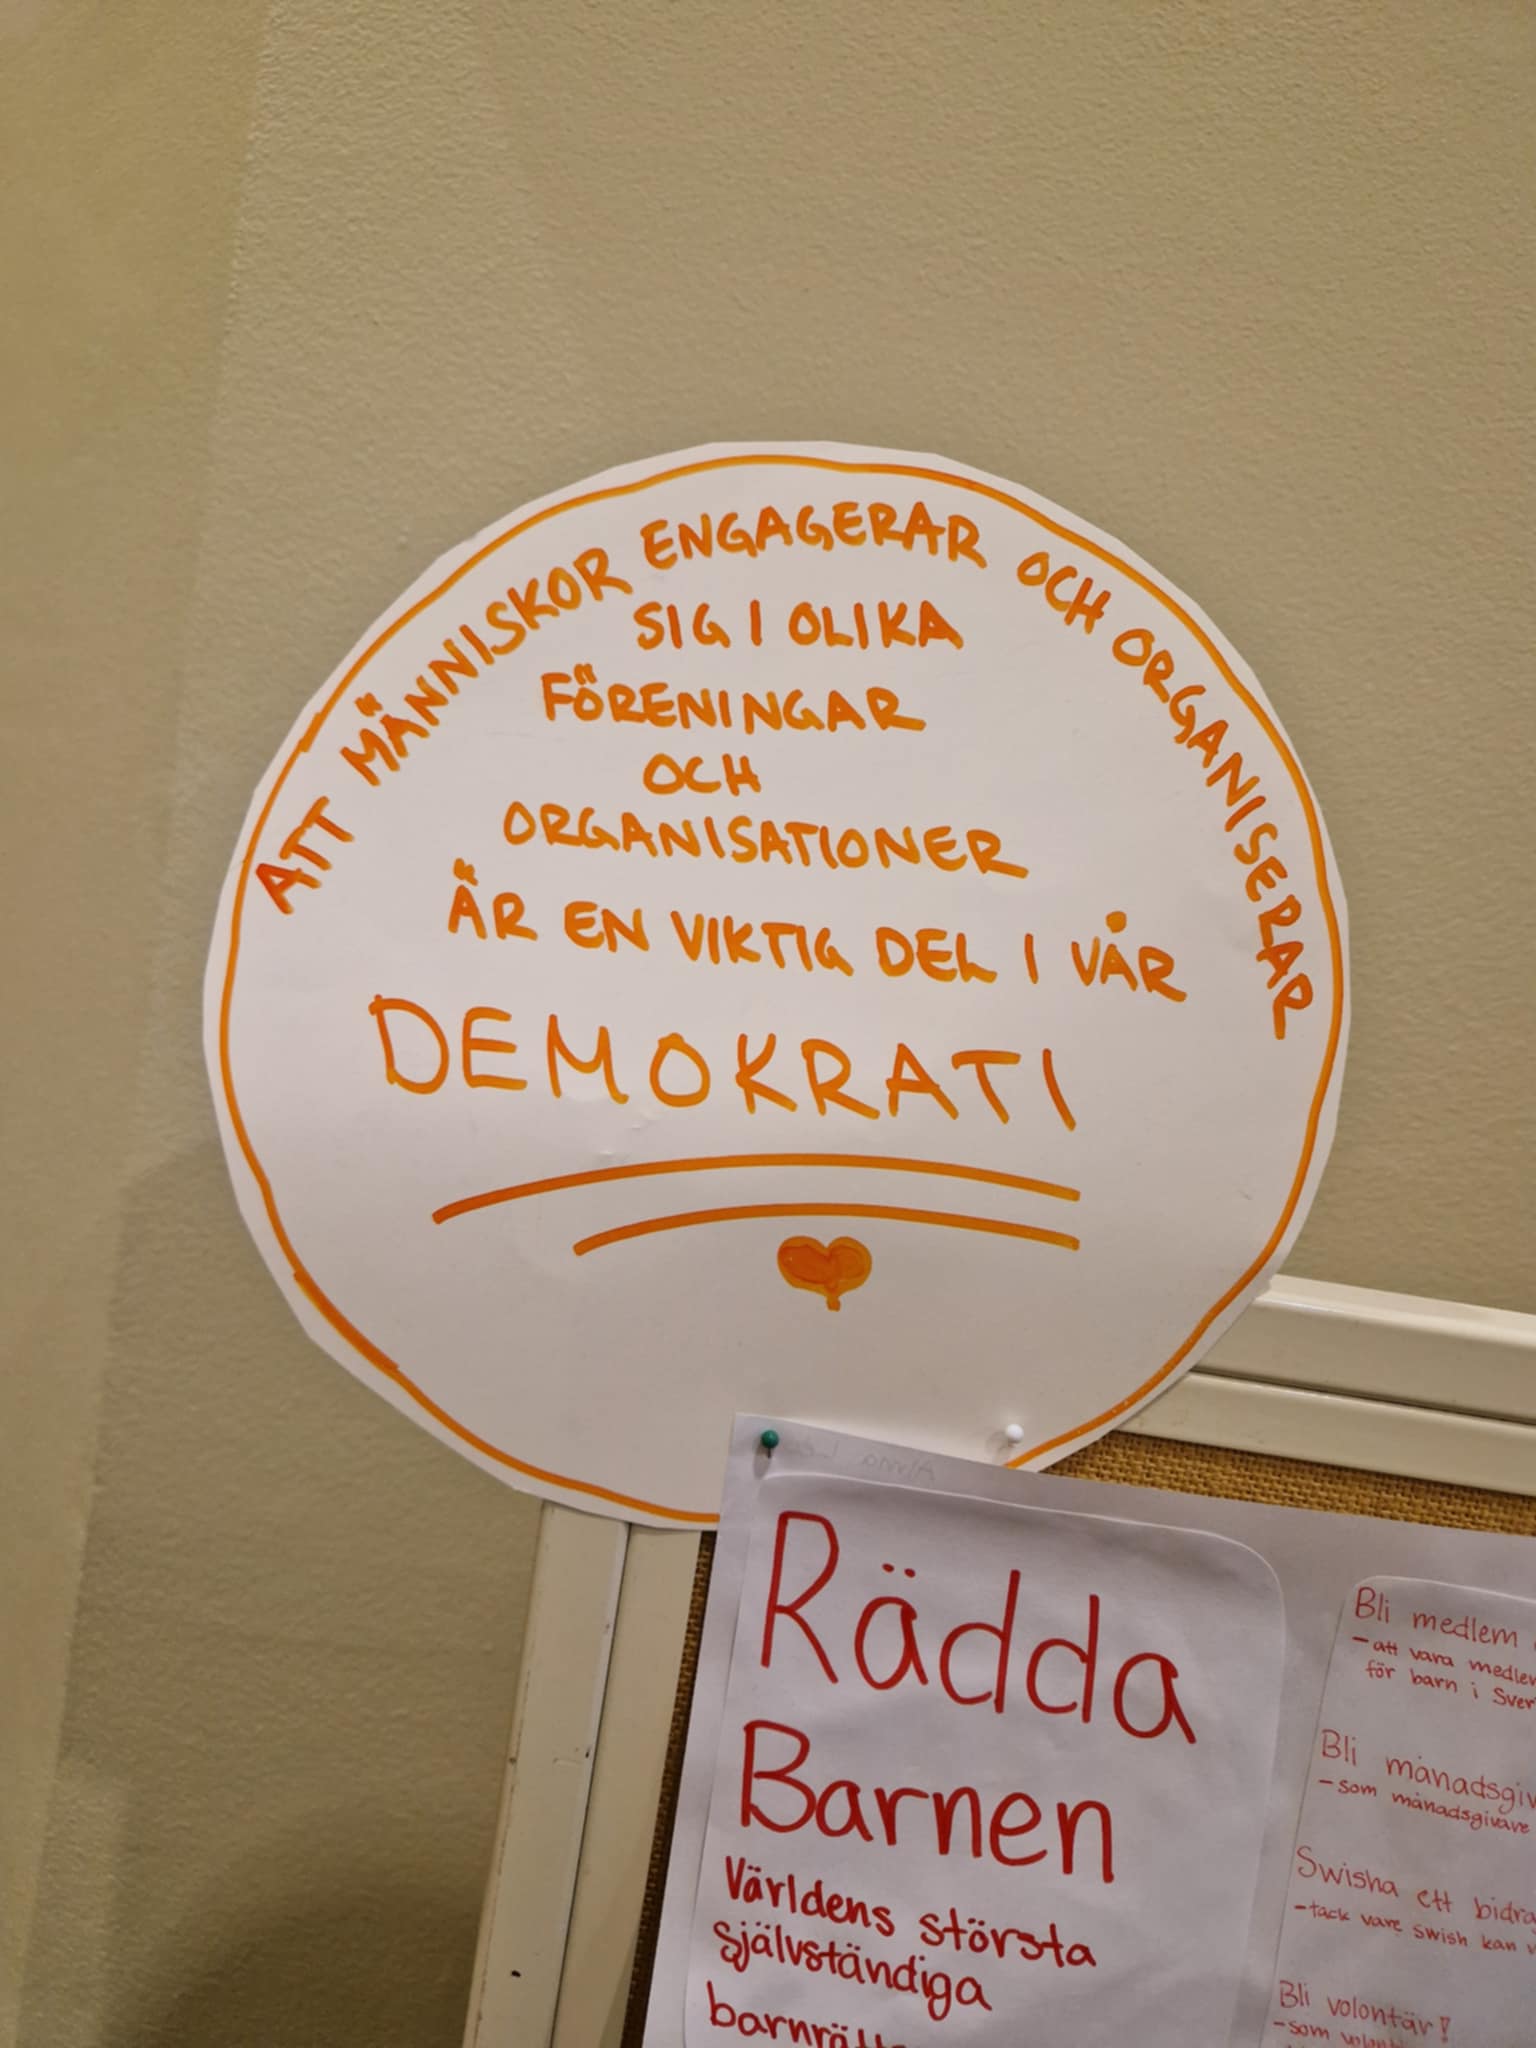 ATT MÄNNISKOR ENGAGERAR OCH ORGANISERAR
SIG I OLIKA
FÖRENINGAR
OCH
ORGANISATIONER
ÄR EN VIKTIG DEL I VÅR
DEMOKRATI
Rädda
Barnen
Världens största
självständiga
Bli medlem
- att vara
för barn i
Bli
- som månadsgivare
Swisha ett
- tack vare swish kan
Bli volontär!
- som